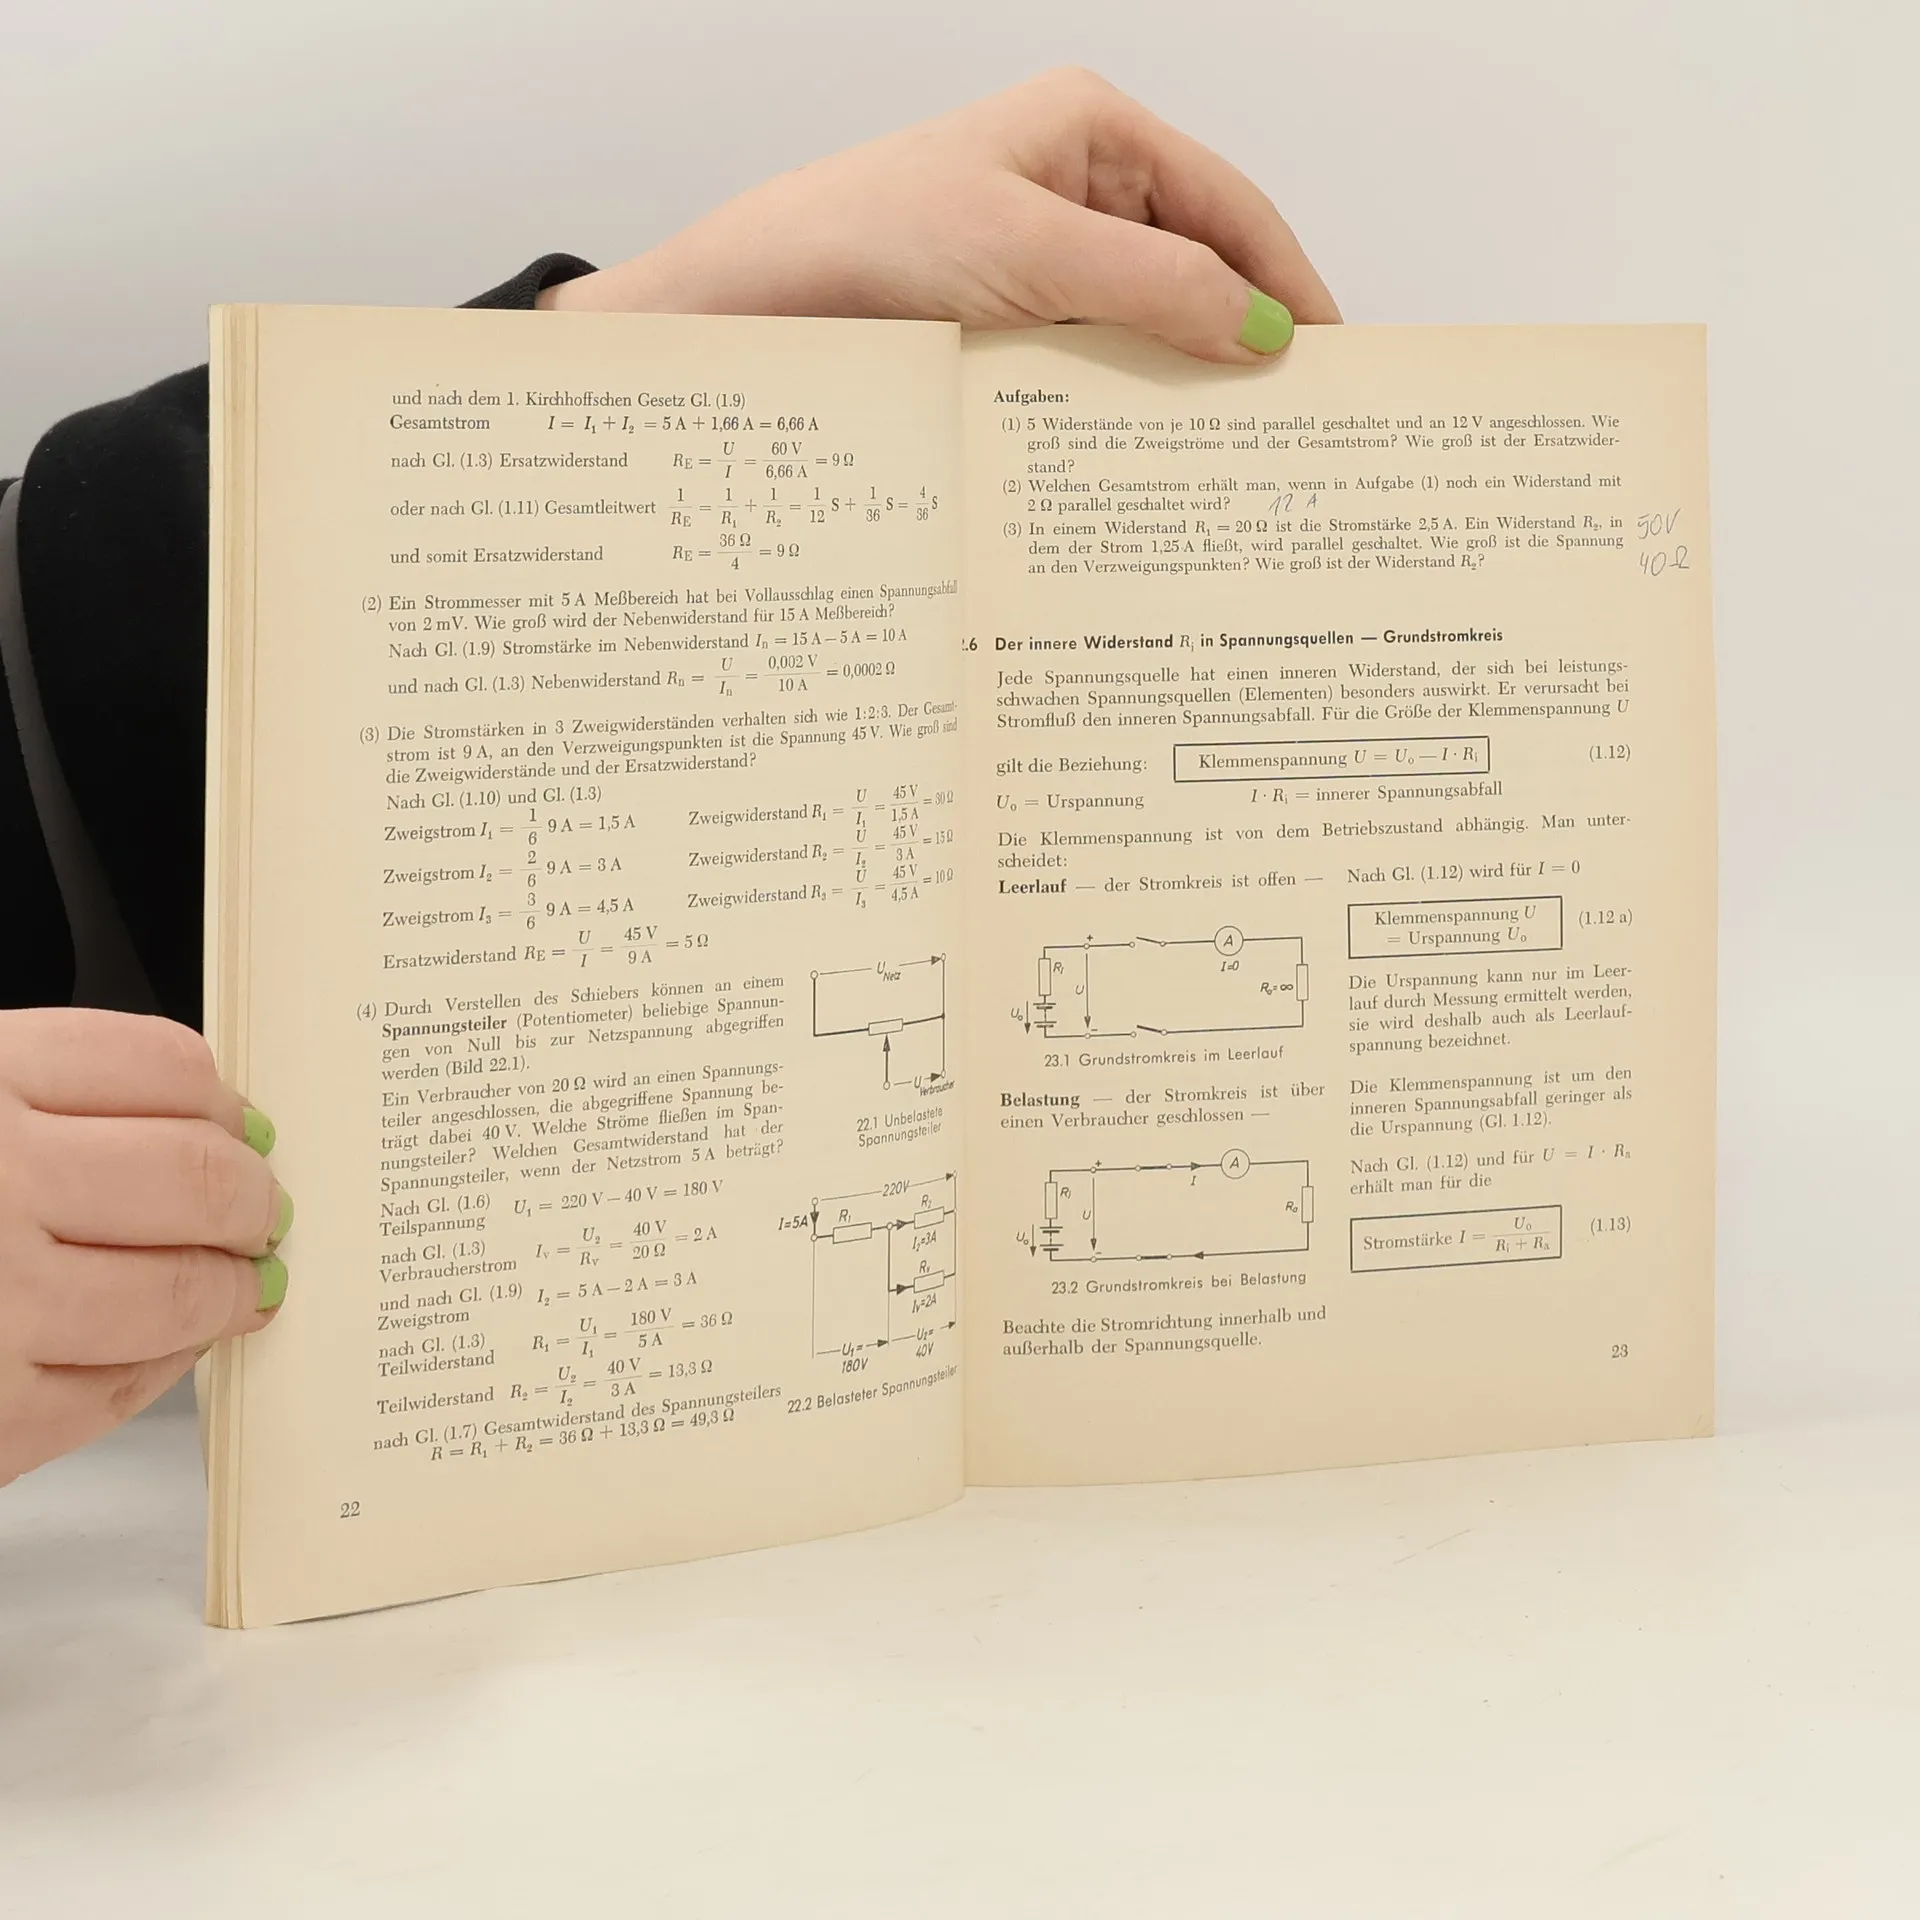 und nach dem 1. Kirchhoffschen Gesetz Gl. (1.9)
Gesamtstrom I = I₁ + I₂ = 5 A + 1,66 A = 6,66 A
nach Gl. (1.3) Ersatzwiderstand R_E = U/I = 60 V/6,66 A = 9 Ω
oder nach Gl. (1.11) Gesamtleitwert 1/R_E = 1/R₁ + 1/R₂ = 1/12 S + 1/36 S = 4/36 S
und somit Ersatzwiderstand R_E = 36 Ω/4 = 9 Ω
(2) Ein Strommesser mit 5 A Meßbereich hat bei Vollausschlag einen Spannungsabfall
von 2 mV. Wie groß wird der Nebenwiderstand für 15 A Meßbereich?
Nach Gl. (1.9) Stromstärke im Nebenwiderstand Iₙ = 15 A – 5 A = 10 A
und nach Gl. (1.3) Nebenwiderstand Rₙ = U/Iₙ = 0,002 V/10 A = 0,0002 Ω
(3) Die Stromstärken in 3 Zweigwiderständen verhalten sich wie 1:2:3. Der Gesamt-
strom ist 9 A, an den Verzweigungspunkten ist die Spannung 45 V. Wie groß sind
die Zweigwiderstände und der Ersatzwiderstand?
Nach Gl. (1.10) und Gl. (1.3)
Zweigstrom I₁ = 1/6 9 A = 1,5 A Zweigwiderstand R₁ = U/I₁ = 45 V/1,5 A = 30 Ω
Zweigstrom I₂ = 2/6 9 A = 3 A Zweigwiderstand R₂ = U/I₂ = 45 V/3 A = 15 Ω
Zweigstrom I₃ = 3/6 9 A = 4,5 A Zweigwiderstand R₃ = U/I₃ = 45 V/4,5 A = 10 Ω
Ersatzwiderstand R_E = U/I = 45 V/9 A = 5 Ω
(4) Durch Verstellen des Schiebers können an einem
Spannungsteiler (Potentiometer) beliebige Spannun-
gen von Null bis zur Netzspannung abgegriffen
werden (Bild 22.1).
Ein Verbraucher von 20 Ω wird an einen Spannungs-
teiler angeschlossen, die abgegriffene Spannung be-
trägt dabei 40 V. Welche Ströme fließen im Span-
nungsteiler? Welchen Gesamtwiderstand hat der
Spannungsteiler, wenn der Netzstrom 5 A beträgt?
Nach Gl. (1.6) U₁ = 220 V – 40 V = 180 V
Teilspannung
nach Gl. (1.3) Iᵥ = U₂/Rᵥ = 40 V/20 Ω = 2 A
Verbraucherstrom
und nach Gl. (1.9) I₂ = 5 A – 2 A = 3 A
Zweigstrom
nach Gl. (1.3) R₁ = U₁/I₁ = 180 V/5 A = 36 Ω
Teilwiderstand
Teilwiderstand R₂ = U₂/I₂ = 40 V/3 A = 13,3 Ω
nach Gl. (1.7) Gesamtwiderstand des Spannungsteilers
R = R₁ + R₂ = 36 Ω + 13,3 Ω = 49,3 Ω
U Netz
U Verbraucher
22.1 Unbelastete
Spannungsteiler
220V
I=5A R₁ R₂
I₂=3A
Rᵥ
Iᵥ=2A
U₁= U₂=
180V 40V
22.2 Belasteter Spannungsteiler
22
Aufgaben:
(1) 5 Widerstände von je 10 Ω sind parallel geschaltet und an 12 V angeschlossen. Wie
groß sind die Zweigströme und der Gesamtstrom? Wie groß ist der Ersatzwider-
stand?
(2) Welchen Gesamtstrom erhält man, wenn in Aufgabe (1) noch ein Widerstand mit
2 Ω parallel geschaltet wird? 12 A
(3) In einem Widerstand R₁ = 20 Ω ist die Stromstärke 2,5 A. Ein Widerstand R₂, in 50V
dem der Strom 1,25 A fließt, wird parallel geschaltet. Wie groß ist die Spannung 40Ω
an den Verzweigungspunkten? Wie groß ist der Widerstand R₂?
.6 Der innere Widerstand Rᵢ in Spannungsquellen — Grundstromkreis
Jede Spannungsquelle hat einen inneren Widerstand, der sich bei leistungs-
schwachen Spannungsquellen (Elementen) besonders auswirkt. Er verursacht bei
Stromfluß den inneren Spannungsabfall. Für die Größe der Klemmenspannung U
gilt die Beziehung: Klemmenspannung U = U₀ — I · Rᵢ (1.12)
U₀ = Urspannung I · Rᵢ = innerer Spannungsabfall
Die Klemmenspannung ist von dem Betriebszustand abhängig. Man unter-
scheidet:
Leerlauf — der Stromkreis ist offen — Nach Gl. (1.12) wird für I = 0
Klemmenspannung U
= Urspannung U₀ (1.12 a)
+ A
Rᵢ I=0
U Rₐ=∞
U₀
-
23.1 Grundstromkreis im Leerlauf
Die Urspannung kann nur im Leer-
lauf durch Messung ermittelt werden,
sie wird deshalb auch als Leerlauf-
spannung bezeichnet.
Belastung — der Stromkreis ist über
einen Verbraucher geschlossen —
Die Klemmenspannung ist um den
inneren Spannungsabfall geringer als
die Urspannung (Gl. 1.12).
+ A
Rᵢ I
U Rₐ
U₀
-
23.2 Grundstromkreis bei Belastung
Nach Gl. (1.12) und für U = I · Rₐ
erhält man für die
Stromstärke I = U₀/(Rᵢ + Rₐ) (1.13)
Beachte die Stromrichtung innerhalb und
außerhalb der Spannungsquelle.
23